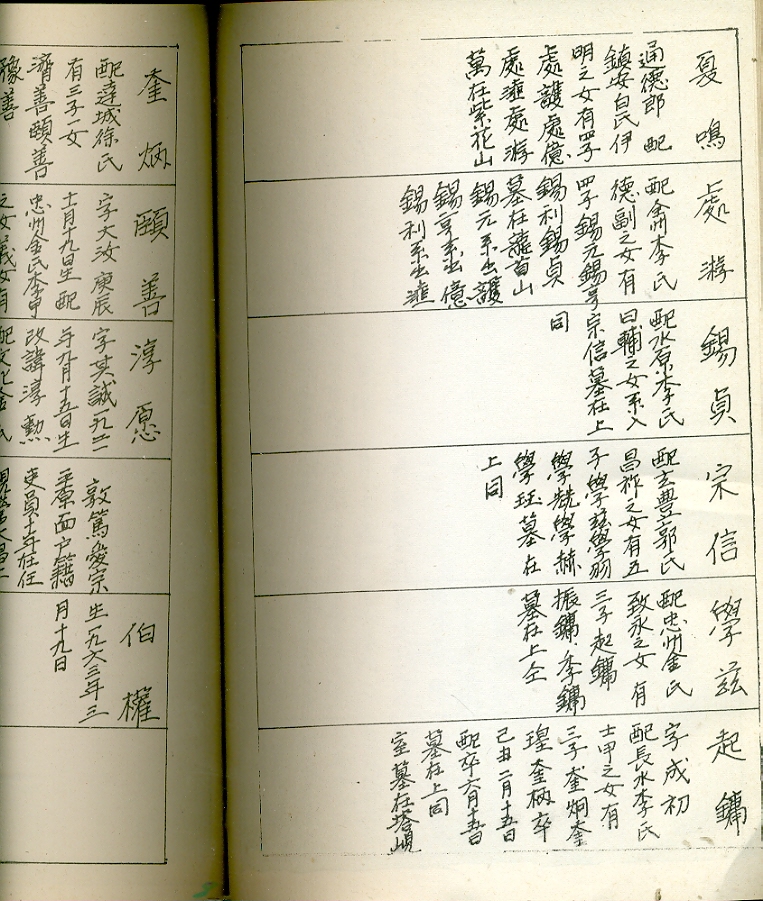 夏鳴
通德郎 配
鎮安白氏伊
明之女有四子
處護處億
處漣處游
萬在紫花山
處游
配金州李氏
德副之女有
四子錫元錫亨
錫利錫貞
墓在蘿首山
錫元系出護
錫亨系出億
錫利系出漣
錫貞
配水原李氏
曰輔之女系入
宗信墓在上
同
宋信
配玄豊郭氏
昌祚之女有五
子學玆學弱
學兢學赫
學珏墓在
上同
學玆
配忠州金氏
致永之女有
三子起鏞
振鏞季鏞
墓在上仝
起鏞
字成初
配長水李氏
士甲之女有
三子奎炯奎
瑝奎柄卒
己丑二月十五日
配卒六月十五日
墓在上同
室墓在塔峴
奎炳
配達城徐氏
有三子一女
濟善頤善
豫善
頤善
字大汝庚辰
十一月十九日生配
忠州金氏李甲
之女義女有
淳愿
字其誠一九二二
年九月十五日生
改諱淳勳
配文化金氏
敦篤愛宗
面戶籍
吏員十年在任
伯權
生一九六三年三
月十九日